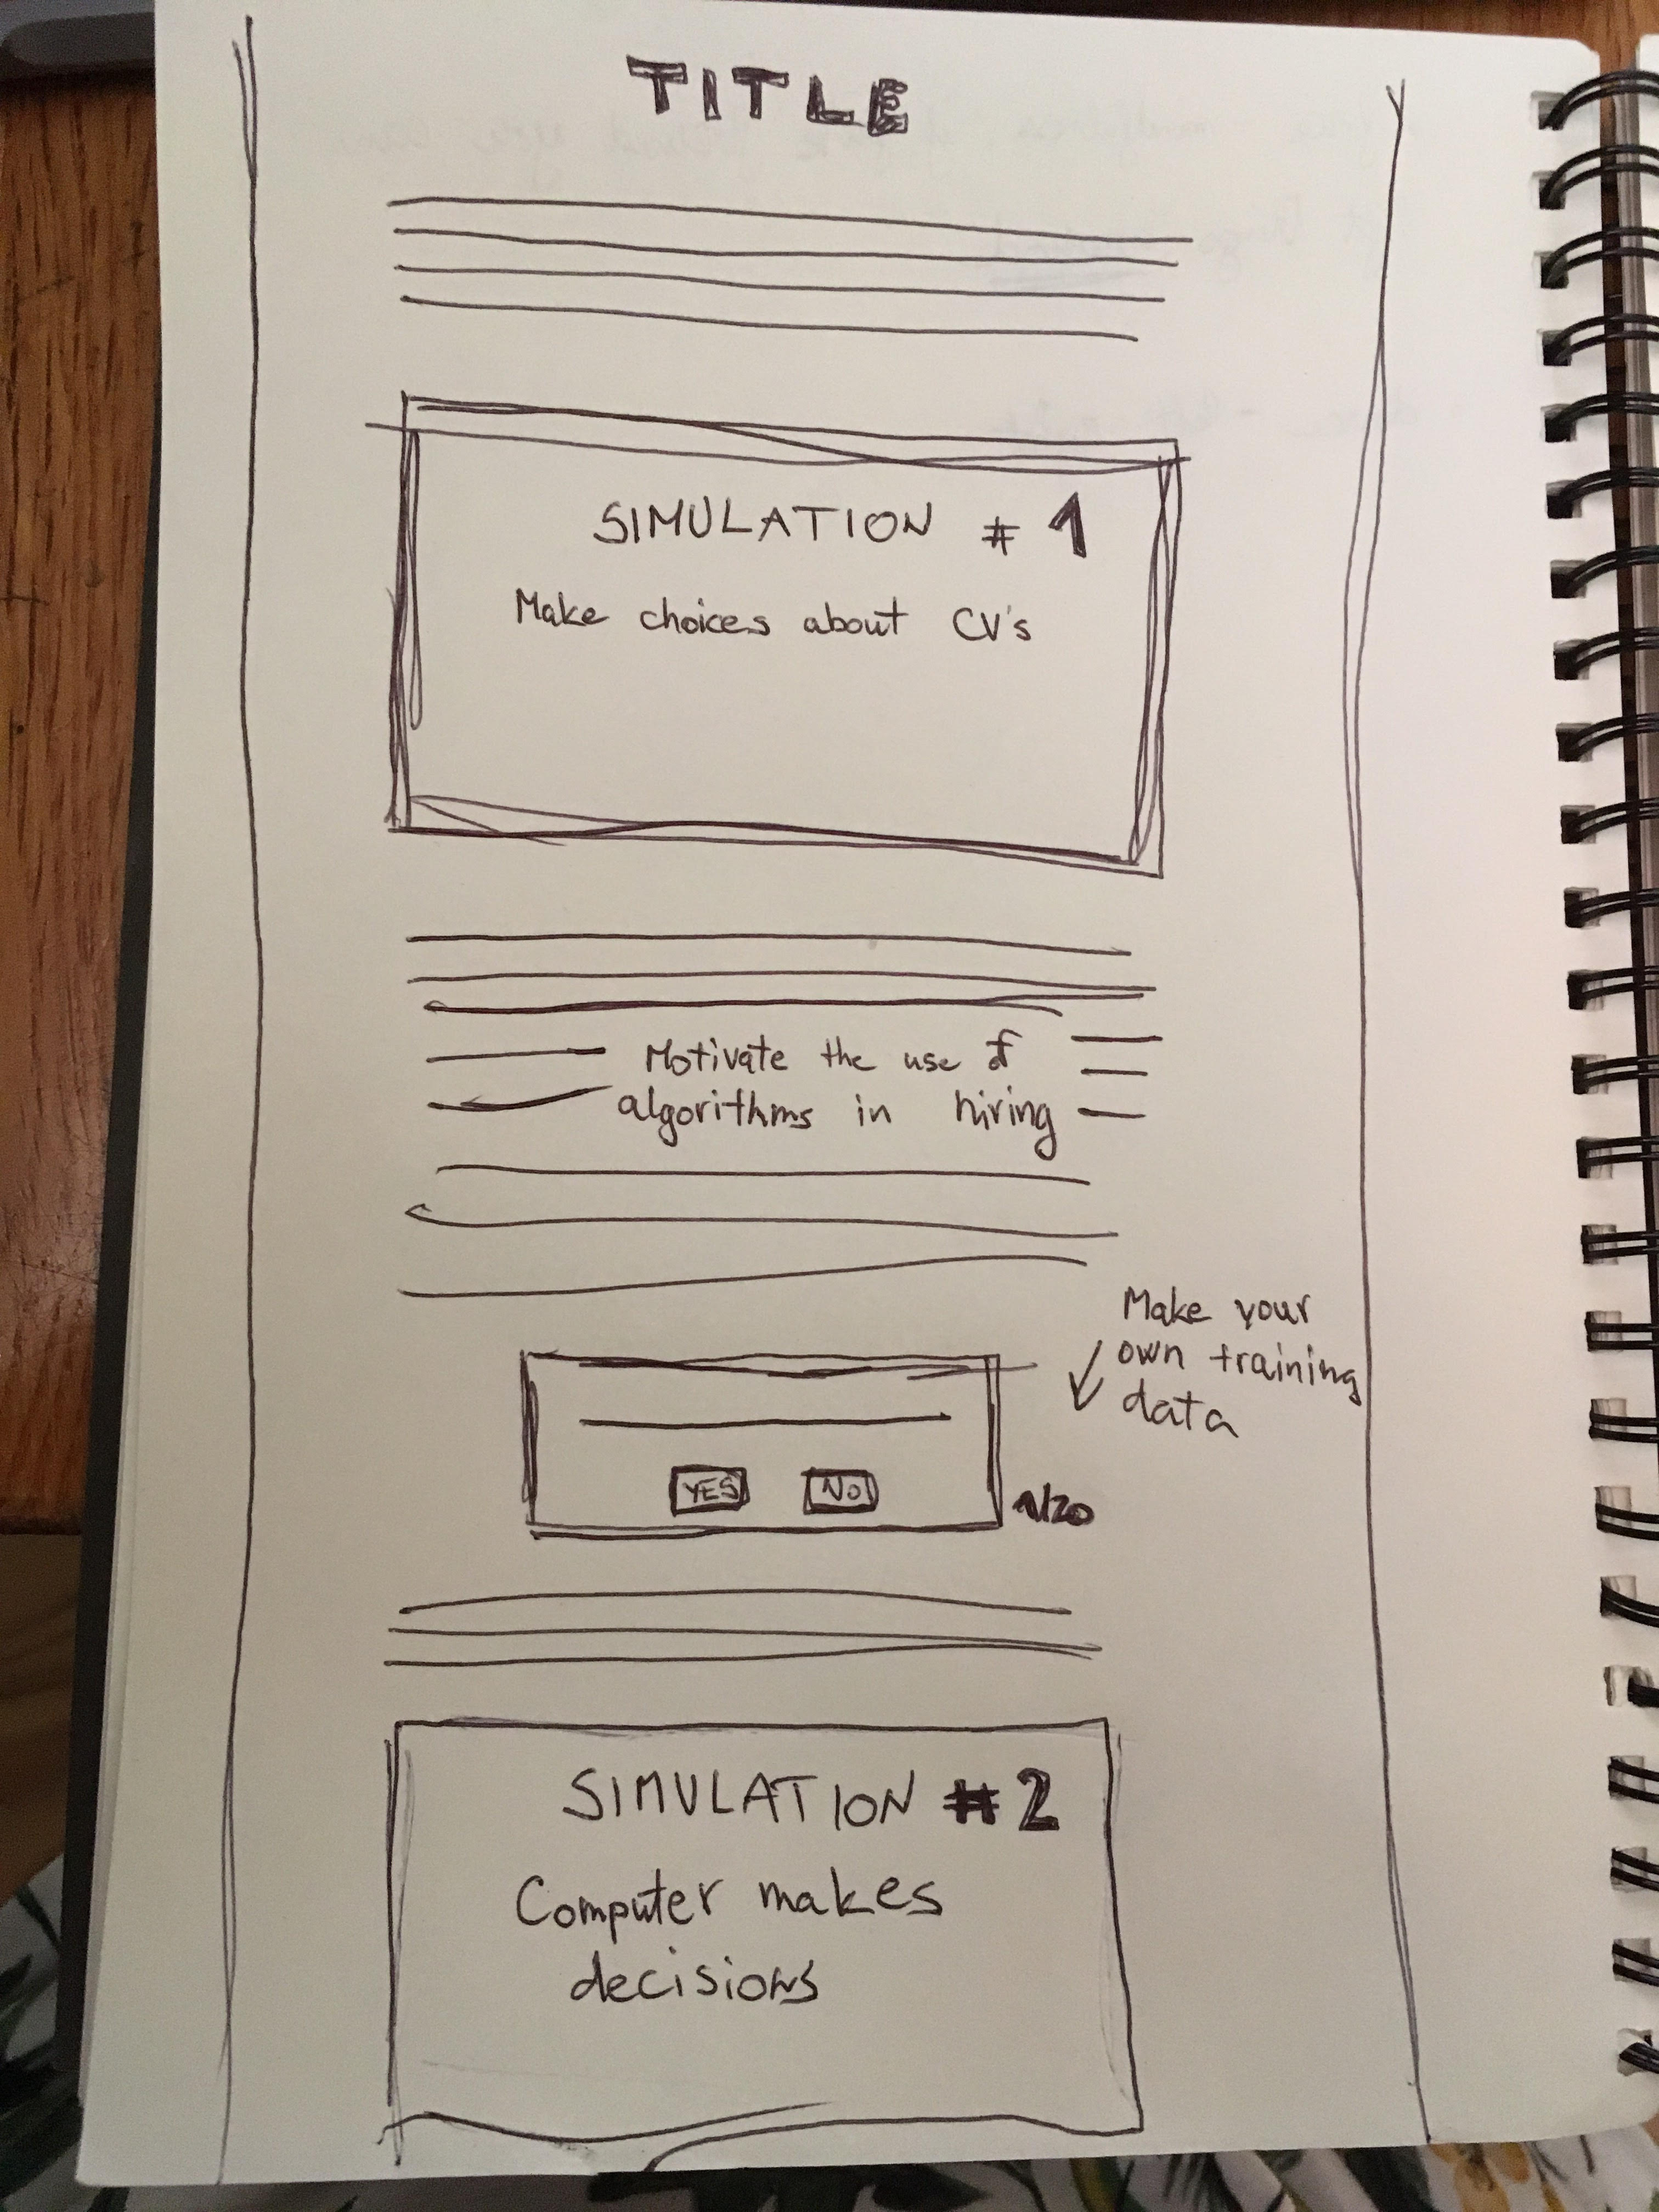 TITLE
SIMULATION # 1
Make choices about CV's
Motivate the use of
algorithms in hiring
Make your
own training
data
YES NO
1/20
SIMULATION #2
Computer makes
decisions